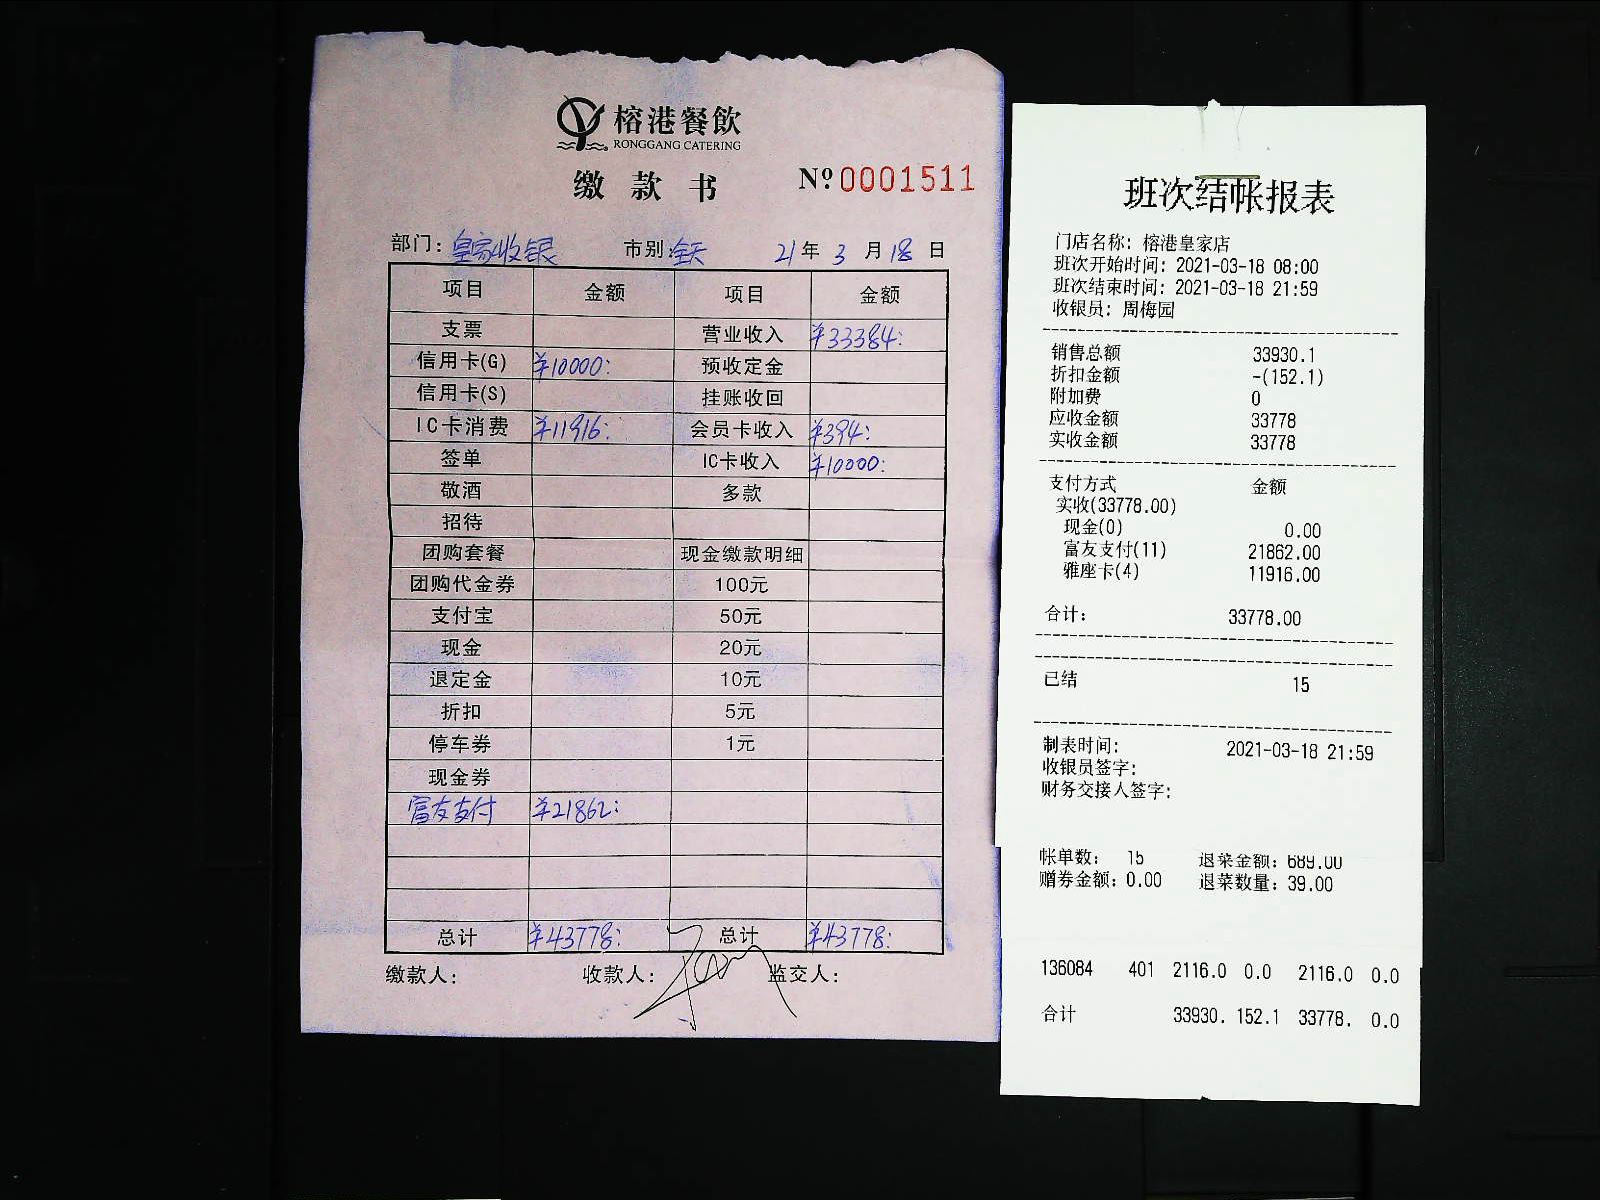 榕港餐飲
RONGGANG CATERING
缴款书 Nº 0001511
部门：皇家收银 市别：全天 21年3月18日
项目 金额 项目 金额
支票 营业收入 ¥33384:
信用卡(G) ¥10000: 预收定金
信用卡(S) 挂账收回
IC卡消费 ¥11916: 会员卡收入 ¥394:
签单 IC卡收入 ¥10000:
敬酒 多款
招待
团购套餐 现金缴款明细
团购代金券 100元
支付宝 50元
现金 20元
退定金 10元
折扣 5元
停车券 1元
现金券
富友支付 ¥21862:
总计 ¥43778: 总计 ¥43778:
缴款人： 收款人： 监交人：
班次结帐报表
门店名称：榕港皇家店
班次开始时间：2021-03-18 08:00
班次结束时间：2021-03-18 21:59
收银员：周梅园
销售总额 33930.1
折扣金额 -(152.1)
附加费 0
应收金额 33778
实收金额 33778
支付方式 金额
实收(33778.00)
现金(0) 0.00
富友支付(11) 21862.00
雅座卡(4) 11916.00
合计： 33778.00
已结 15
制表时间： 2021-03-18 21:59
收银员签字：
财务交接人签字：
帐单数： 15 退菜金额：689.00
赠券金额：0.00 退菜数量：39.00
136084 401 2116.0 0.0 2116.0 0.0
合计 33930. 152.1 33778. 0.0